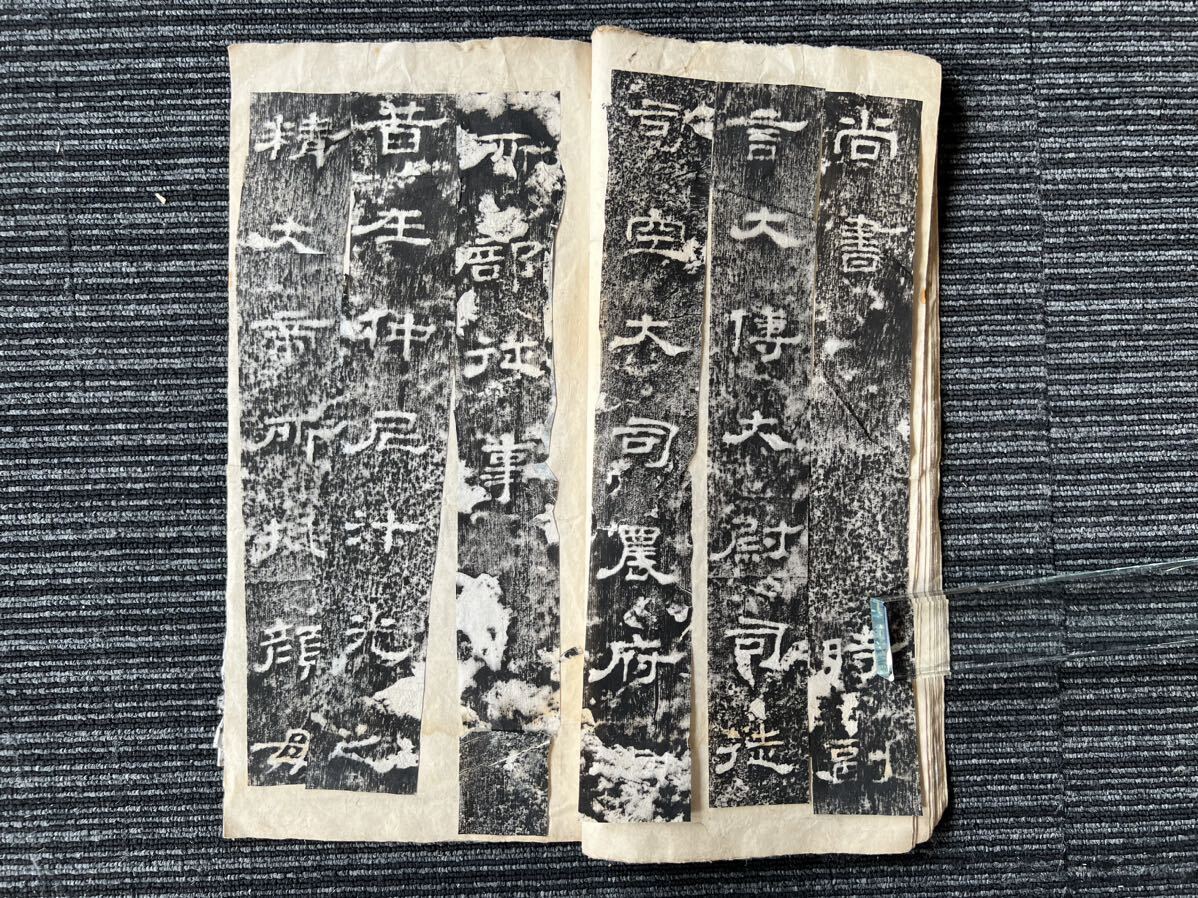 尚書時副
言大傅大尉司徒
司空大司農府
所部從事
昔在仲尼汁光之
精大帝所挺顏母